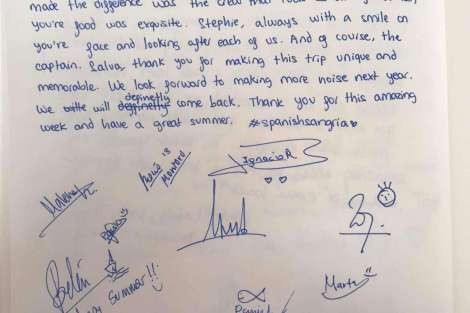 made the difference was the crew that
you're food was exquisite. Stephie, always with a smile on
you're face and looking after each of us. And of course, the
captain. Salva, thank you for making this trip unique and
memorable. We look forward to making more noise next year.
We will definetly come back. Thank you for this amazing
week and have a great summer. #spanishsangria
Ignacio R.
Belén
summer!!
Marta
Daniel